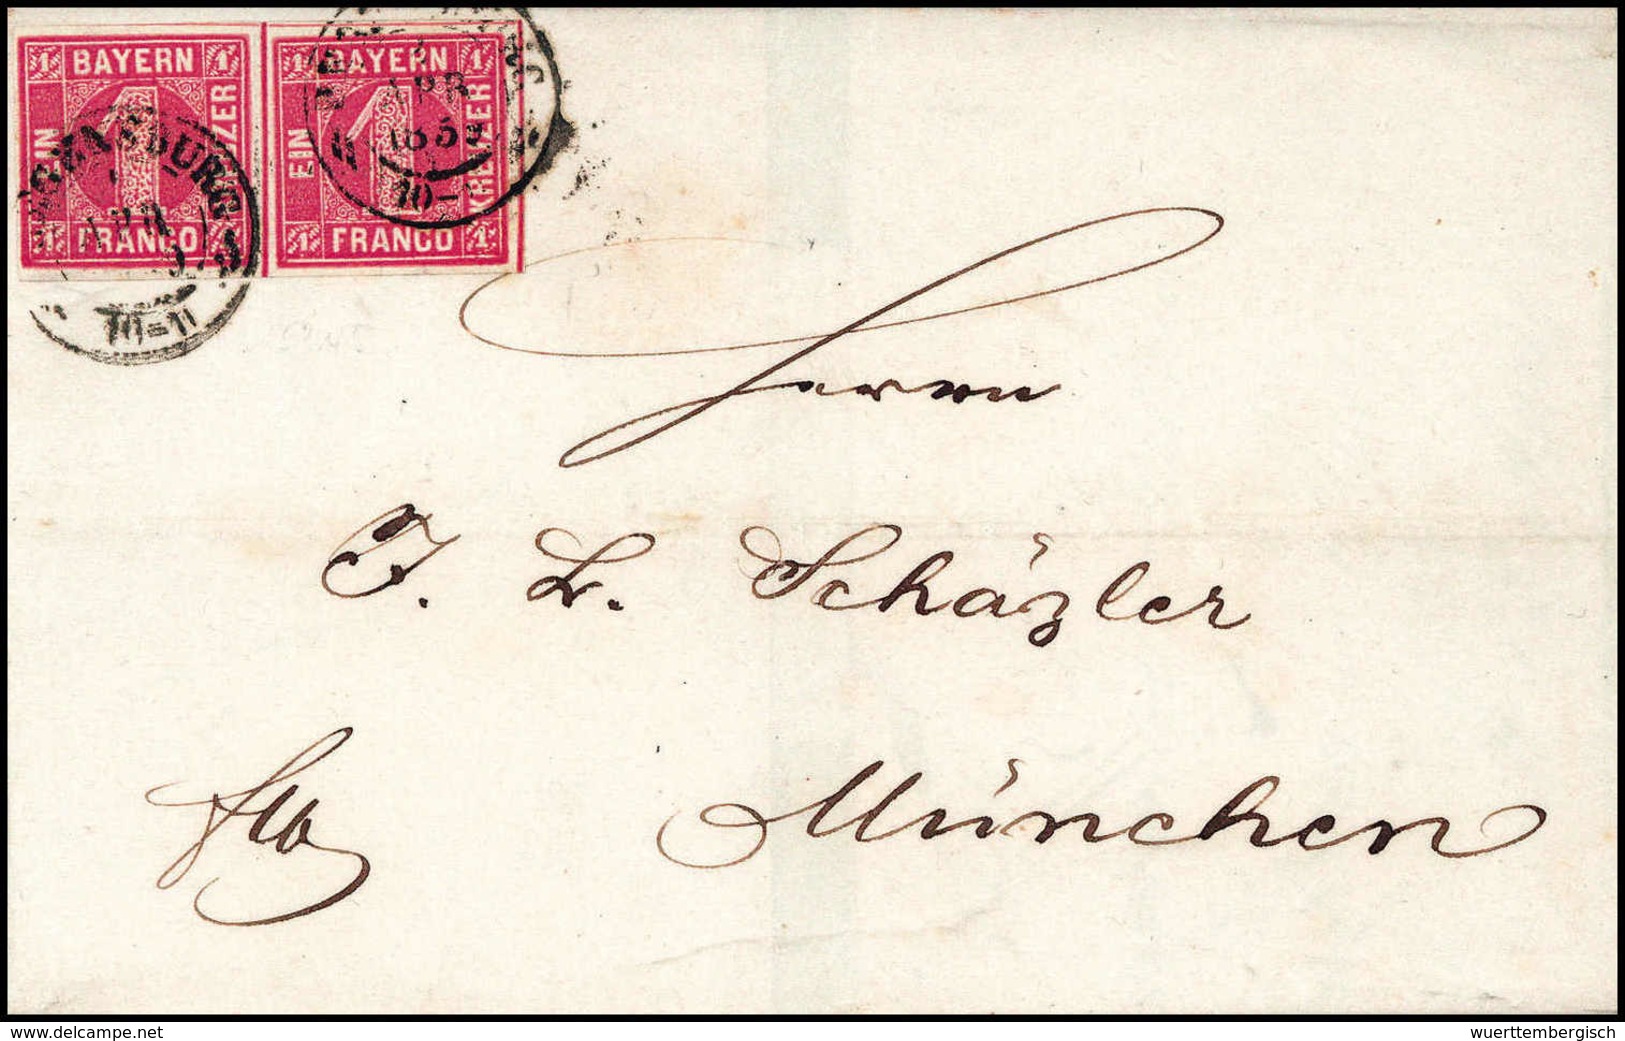 1 BAYERN 1 1 BAYERN 1
EIN KREUZER EIN KREUZER
1 FRANCO 1 1 FRANCO 1
REGENSBURG
APR
10-11
APR
185
10-
Herrn
J. L. Schäzler
fro
München
www.delcampe.net
wuerttembergisch